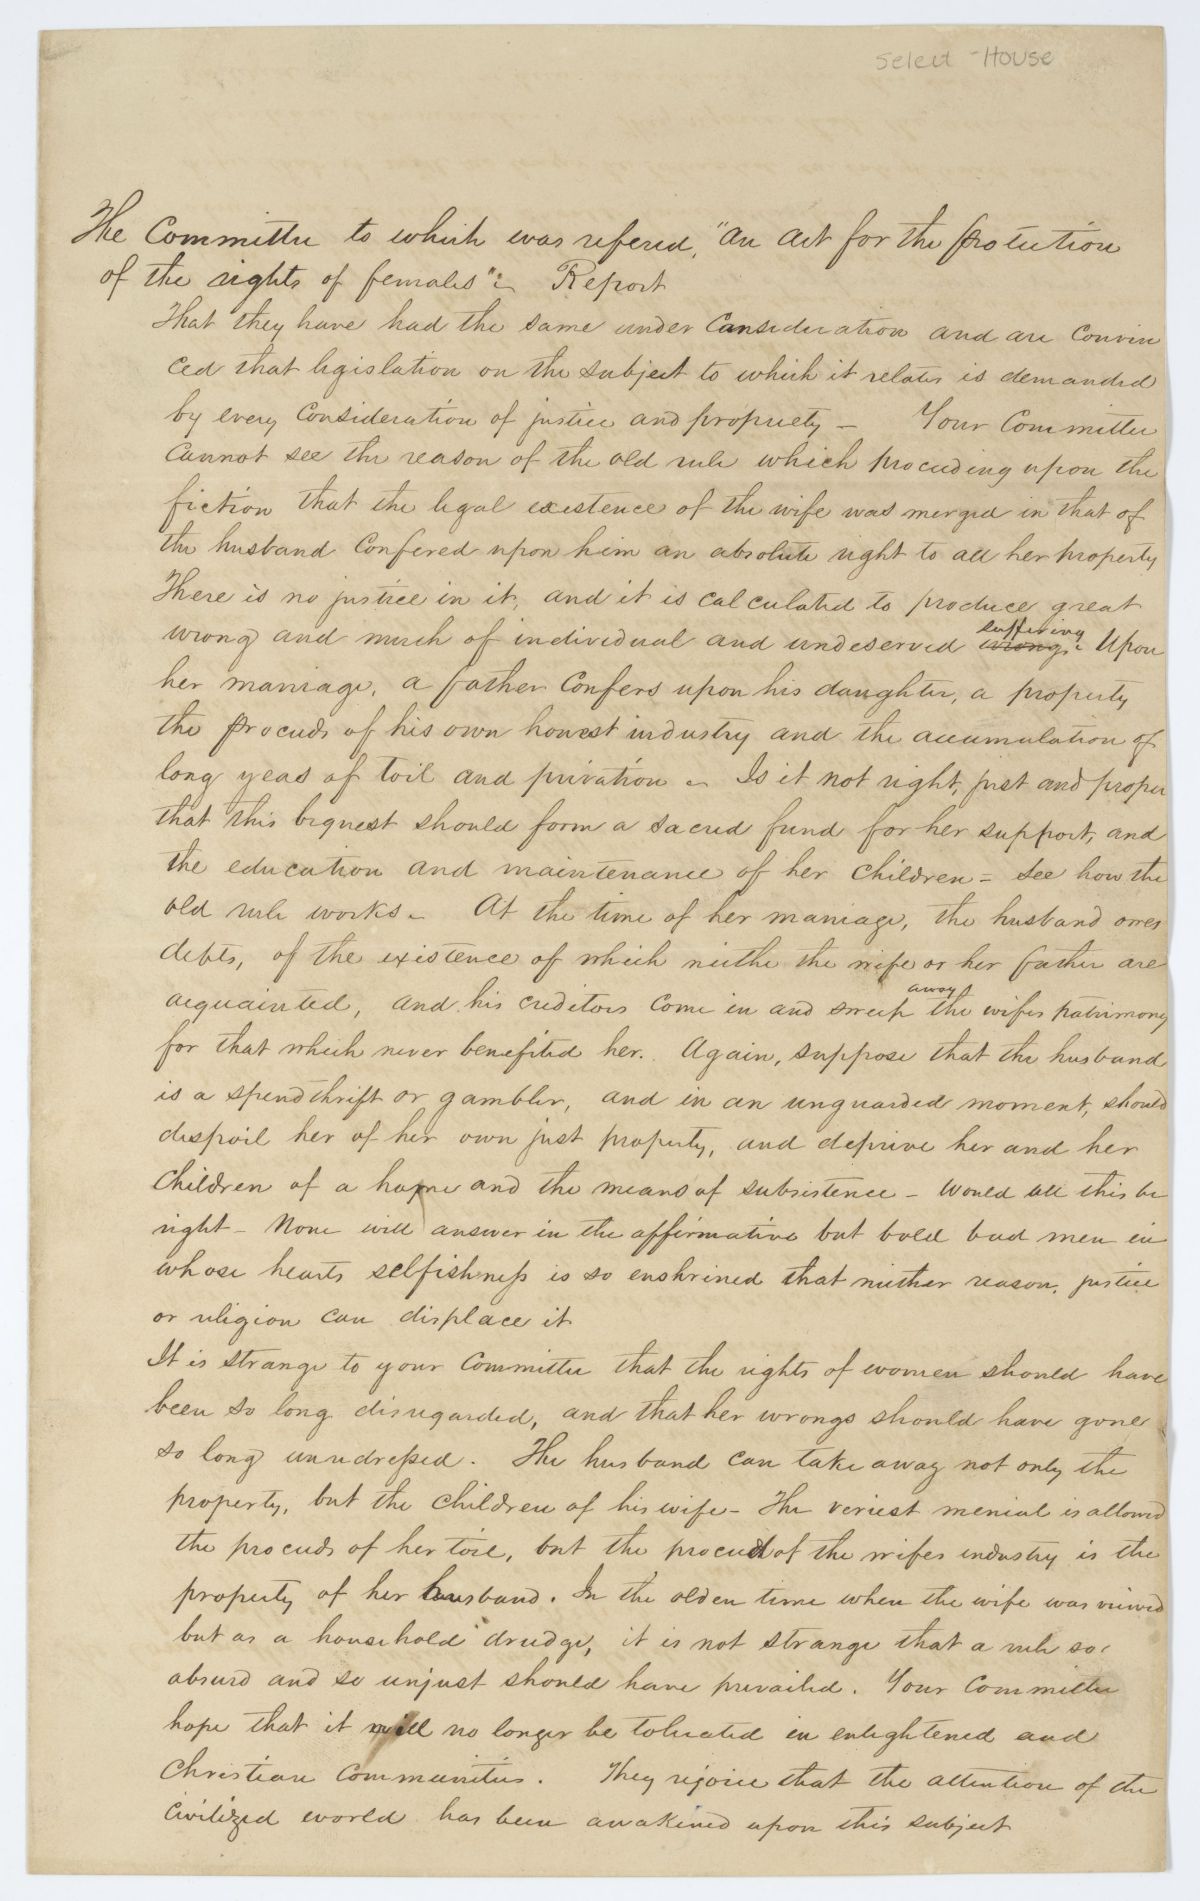 Select - House
The Committee to which was refered, "An Act for the protection
of the rights of females" - Report
That they have had the same under Consideration and are Convin
ced that legislation on the subject to which it relates is demanded
by every Consideration of justice and propriety - Your Committee
Cannot see the reason of the old rule which proceeding upon the
fiction that the legal existence of the wife was merged in that of
the husband Confered upon him an absolute right to all her property
There is no justice in it, and it is calculated to produce great
wrong and much of individual and undeserved wrongs suffering. Upon
her marriage, a father Confers upon his daughter, a property
the proceeds of his own honest industry and the accumulation of
long yeas of toil and privation - Is it not right, just and proper
that this bequest should form a sacred fund for her support, and
the education and maintenance of her Children - See how the
old rule works - At the time of her marriage, the husband owes
debts, of the existence of which neithe the wife or her father are
acquainted, and his creditors Come in and sweep away the wifes patrimony
for that which never benefited her. Again, suppose that the husband
is a spendthrift or gambler, and in an unguarded moment, should
despoil her of her own just property, and deprive her and her
Children of a home and the means of subsistence - Would all this be
right - None will answer in the affirmative but bold bad men in
whose hearts selfishness is so enshrined that neither reason, justice
or religion can displace it
It is strange to your Committee that the rights of women should have
been so long disregarded, and that her wrongs should have gone
so long unredressed. The husband can take away not only the
property, but the Children of his wife - The veriest menial is allowed
the proceeds of her toil, but the proceed of the wifes industry is the
property of her husband. In the olden time when the wife was viewed
but as a household drudge, it is not strange that a rule so
absurd and so unjust should have prevailed. Your Committee
hope that it will no longer be tolerated in enlightened and
Christian Communities. They rejoice that the attention of the
Civilized world has been awakened upon this subject